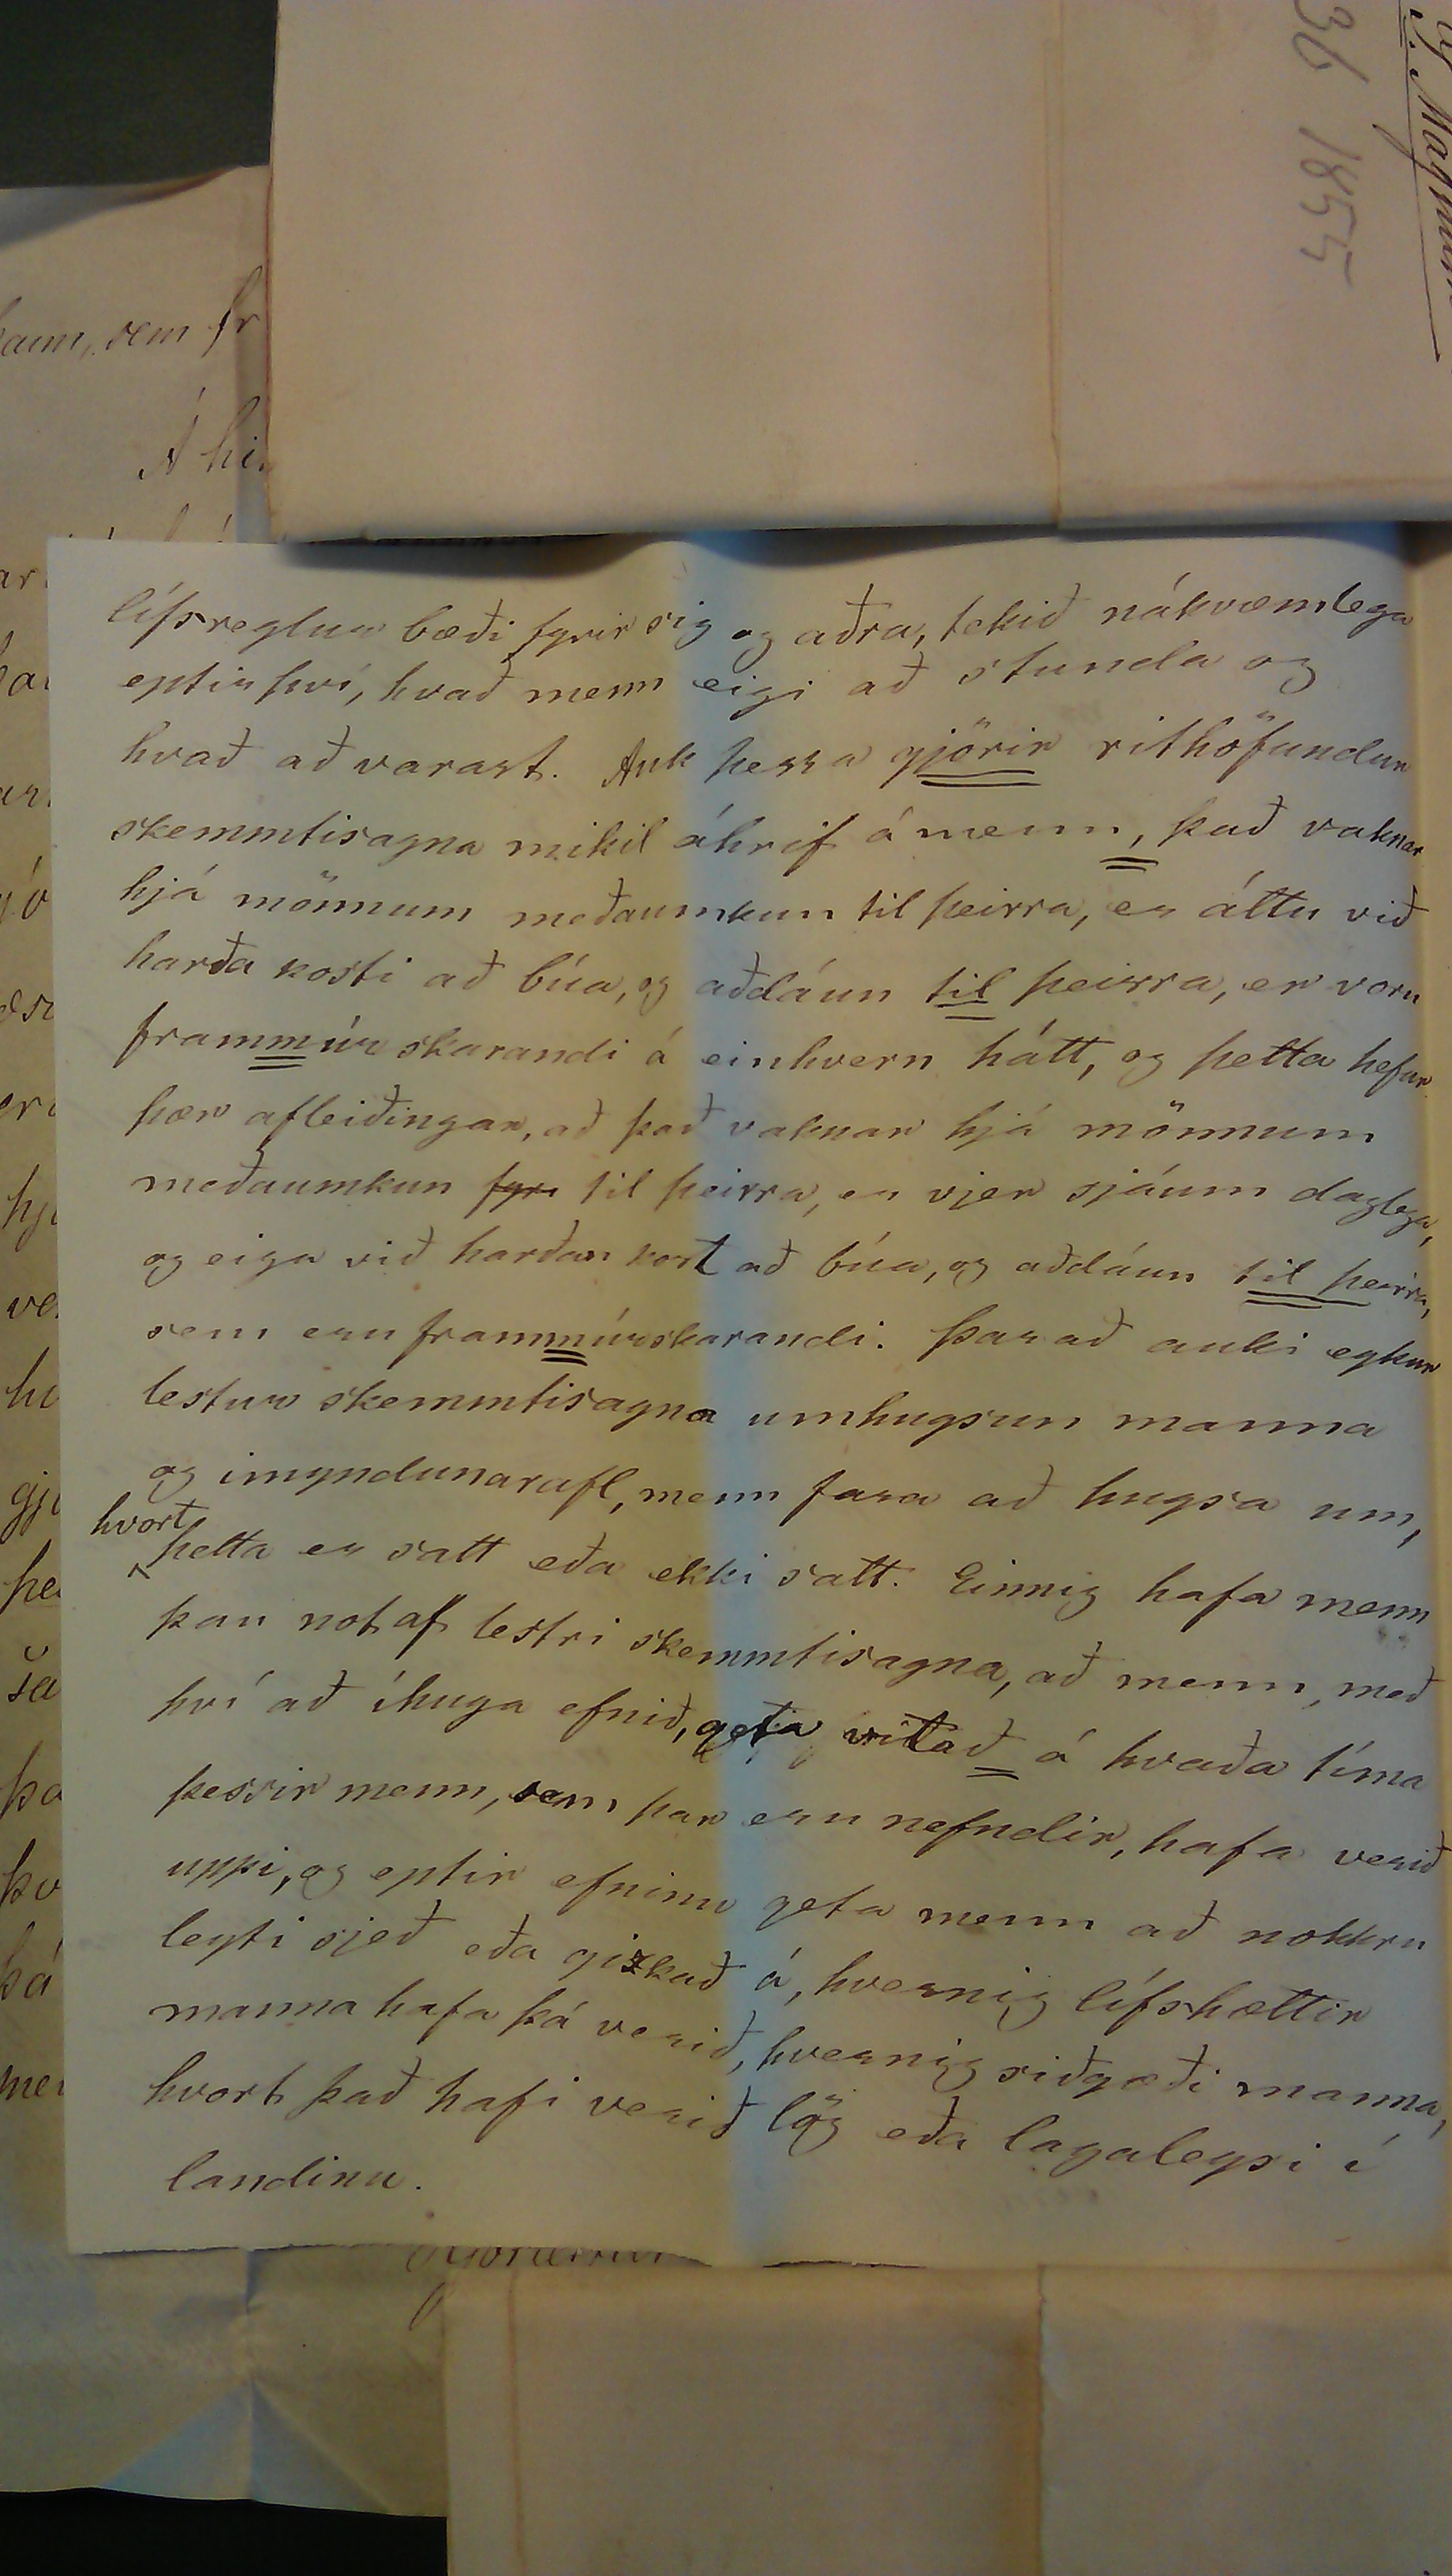 36 1855
lífsreglur bæði fyrir sig og aðra, tekið nákvæmlega
eptir því, hvað menn eigi að stunda og
hvað að varast. Auk þessa gjörir rithöfundur
skemmtisagna mikil áhrif á menn, það vaknar
hjá mönnum meðaumkun til þeirra, er áttu við
harða kosti að búa, og aðdáun til þeirra, er voru
frammúr skarandi á einhvern hátt, og þetta hefur
þær afleiðingar, að það vaknar hjá mönnum
meðaumkun fyr til þeirra, er vjer sjáum daglega,
og eiga við harðan kost að búa, og aðdáun til þeirra,
sem eru frammúrskarandi. Þar að auki eykur
lestur skemmtisagna umhugsun manna
og imyndunarafl, menn fara að hugsa um,
hvort
þetta er satt eða ekki satt. Einnig hafa menn
þau not af lestri skemmtisagna, að menn, með
því að íhuga efnið, geta vitað á hvaða tíma
þessir menn, sem þar eru nefndir, hafa verið
uppi, og eptir efninu geta menn að nokkru
leyti sjeð eða gizkað á, hvernig lífshættir
manna hafa þá verið, hvernig siðgæði manna,
hvort það hafi verið lög eða lagaleysi í
landinu.